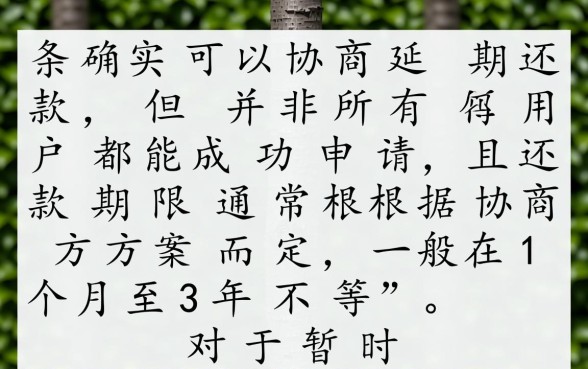 条确实可以协商延 期还
款, 但 并非所有 用
户 都能成 功 申 请, 且还
款 期 限 通 常根根据 协商
方方案 而 定, 一般在 1
个月至3年 不 等”。
对 于 暂 时